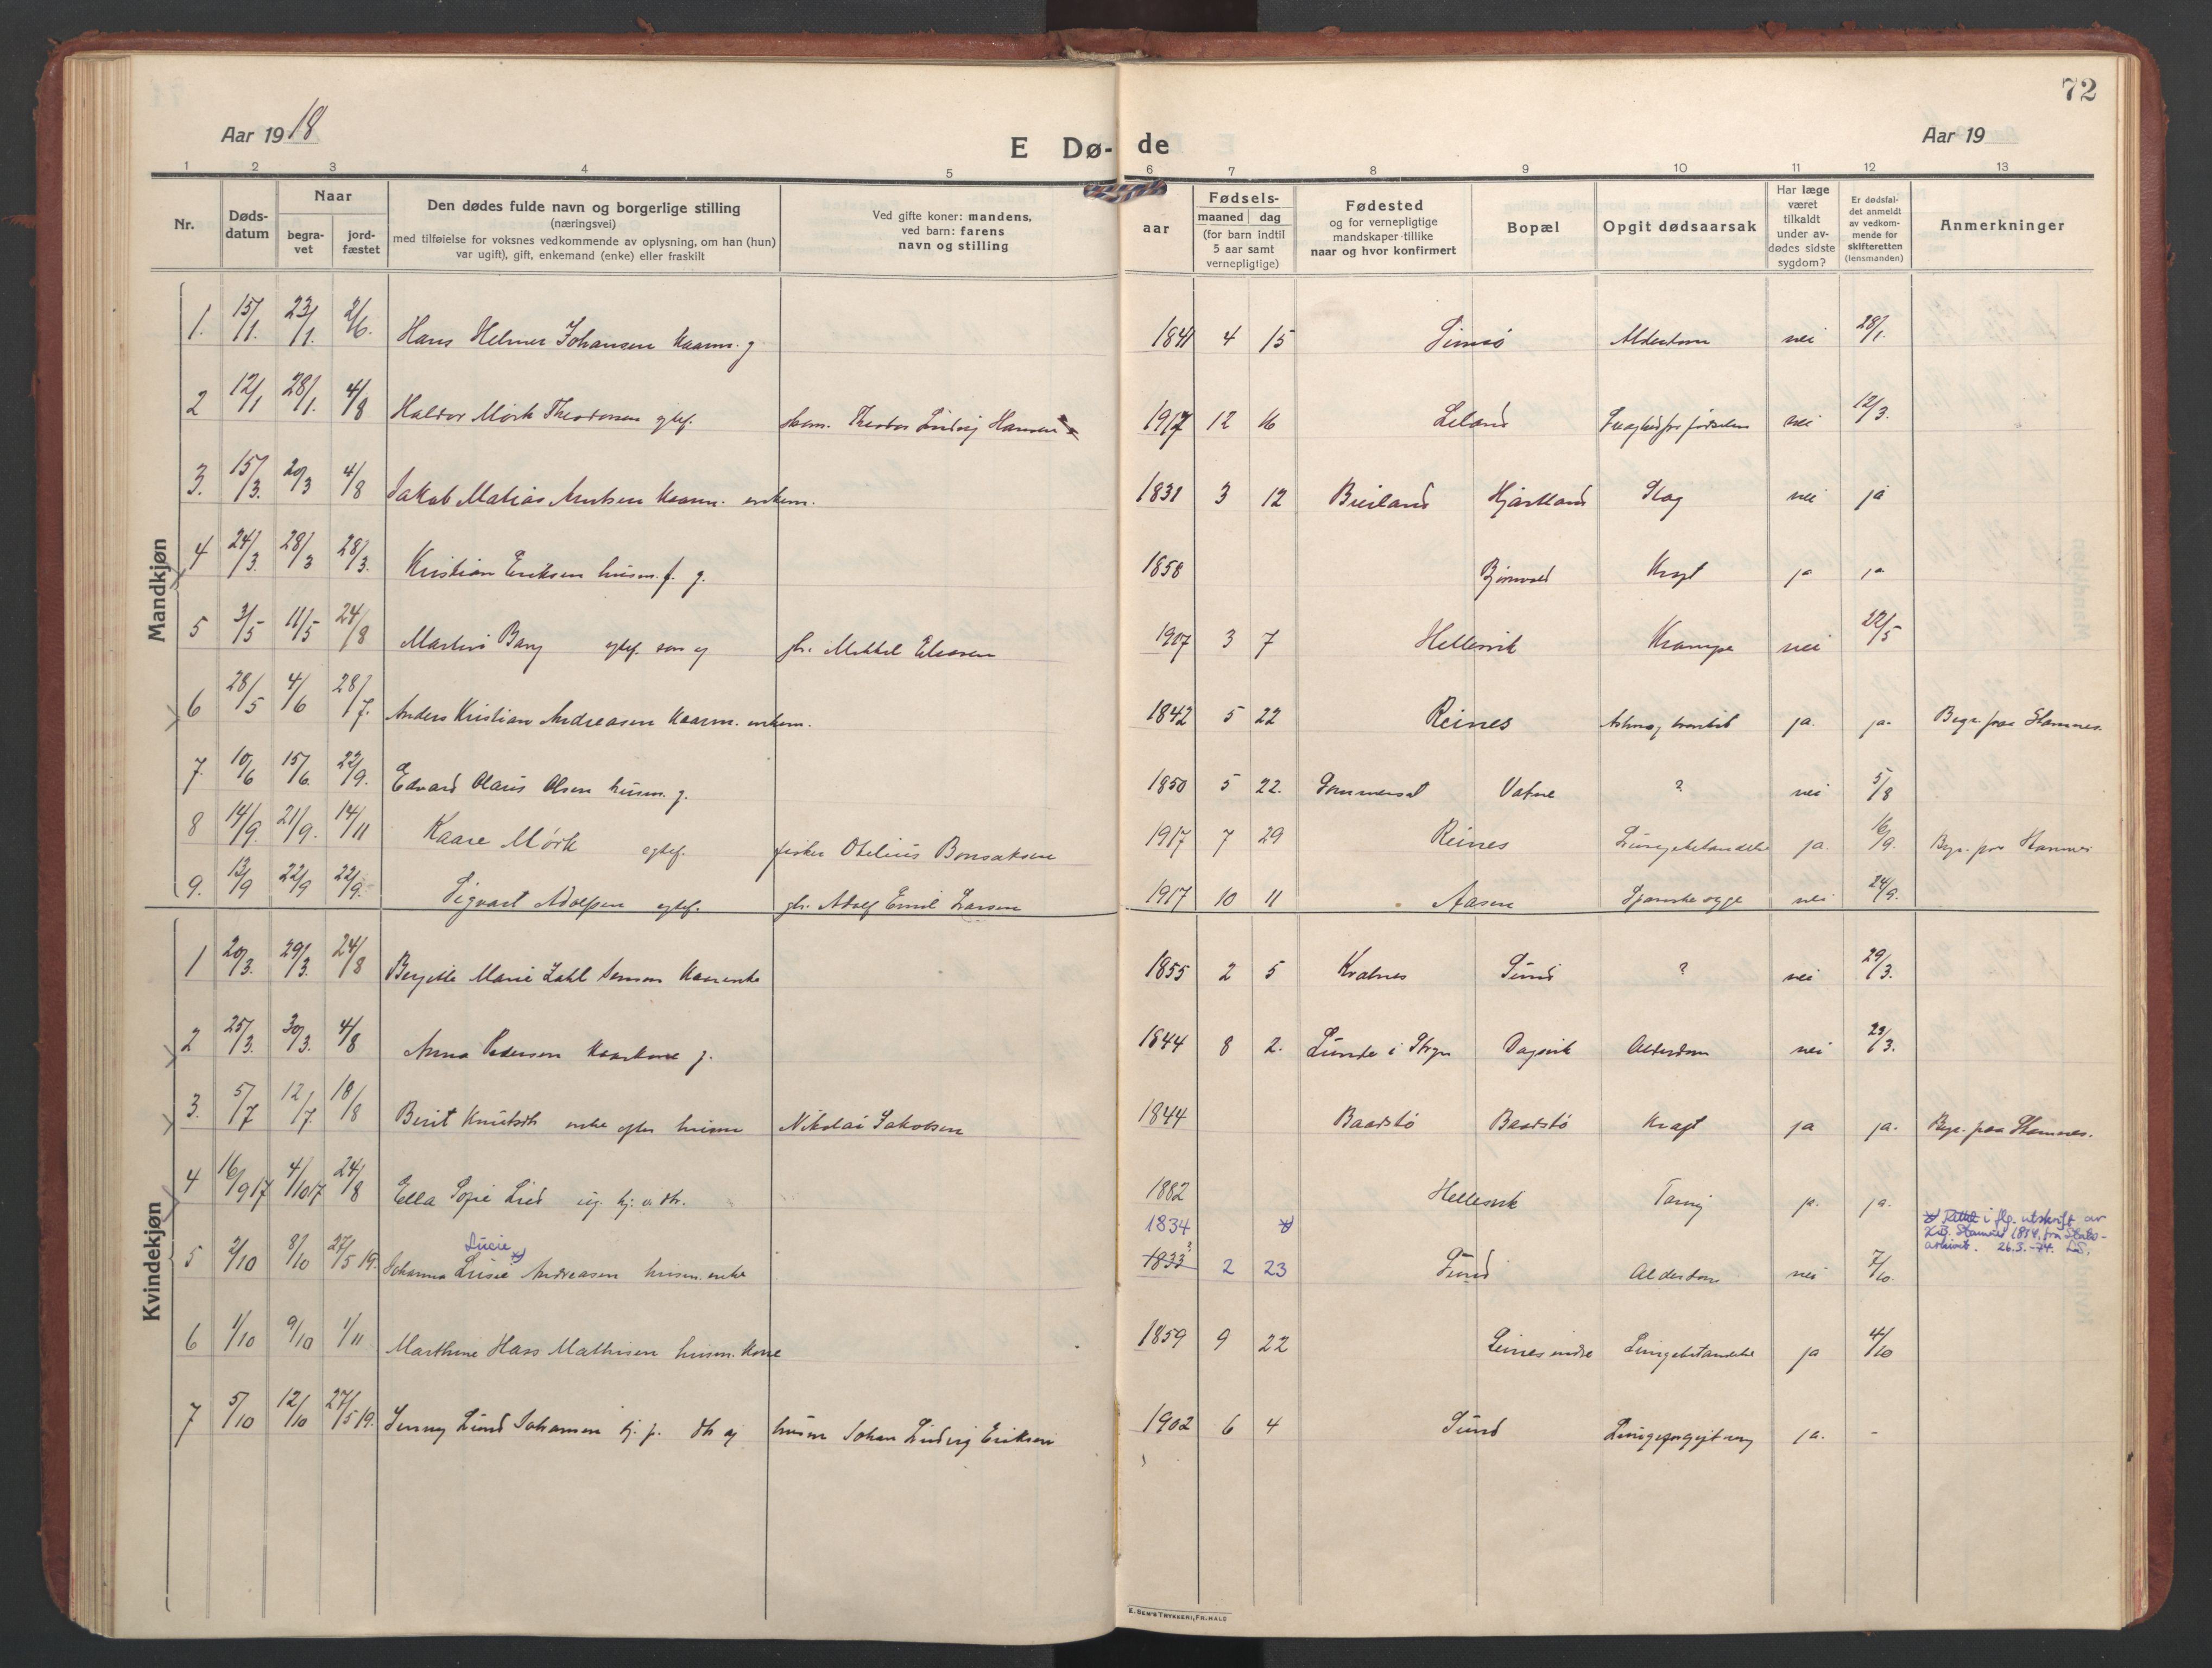 72
Aar 1918
E Dø-de
Aar 19
1 2 3 4 5 6 7 8 9 10 11 12 13
Nr.
Døds-
datum
Naar
begra-
vet
jord-
fæstet
Den dødes fulde navn og borgerlige stilling
(næringsvei)
med tilføielse for voksnes vedkommende av oplysning, om han (hun)
var ugift), gift, enkemand (enke) eller fraskilt
Ved gifte koner: mandens,
ved barn: farens
navn og stilling
aar
Fødsels-
maaned dag
(for barn indtil
5 aar samt
vernepligtige)
Fødested
og for vernepligtige
mandskaper tillike
naar og hvor konfirmert
Bopæl
Opgit dødsaarsak
Har læge
været
tilkaldt
under av-
dødes sidste
sygdom?
Er dødsfal-
det anmeldt
av vedkom-
mende for
skifteretten
(lensmanden)
Anmerkninger
Mandkjøn
1. 15/1. 23/1. 2/6. Hans Helmer Johansen kaarm. g 1841 4 15 Sund Alderdom nei 28/1.
2 12/1 28/1. 4/8 Haldor Mørk Theodorsen egtef. Theodor Ludvig Hansen 1917 12 16 Leland nei 12/3.
3. 15/3. 20/3 4/8 Jakob Matias Arntsen kaarm. enkem. 1831 3 12 Beiland Hjartland Slag nei ja
4 24/3. 28/3 28/3. Kristian Eriksen husm. f. g. 1858 Kræft ja ja
5 3/5 11/5 24/8 Martin Berg egtef. søn av gbr. Mikkel Eliasen 1907 3 7 Hellesvik Krampe nei 22/5
6 28/5 4/6 28/7. Anders Kristian Andreasen kaarm. enkem. 1842 5 22 Reines ja. ja. Begr. paa Stamnes.
7. 10/6 15/6. 22/9. Edvard Olaus Olsen husm. g. 1850 5 22. Sommerset Vatne ? nei 5/8
8 14/9. 21/9. 14/11 Kaare Mørk egtef. fisker Otelius Bonsaksen 1917 7 29 Reines Lungebetændelse ja. 16/9. Begr. paa Stamnes
9. 13/9 22/9 22/9. Sigvart Adolfsen egtef. gbr. Adolf Emil Larsen 1917 10 11 Aasen Spanske syge nei 24/9.
Kvindekjøn
1 20/3. 29/3. 24/8 Bergitte Marie Zahl Jenson kaarenke 1855 2 5 Kvalnes Sund ? nei 29/3.
2 25/3. 30/3. 4/8 Anna Pedersen kaarkone g. 1844 8 2. Lunde i Stryn Dagsvik Alderdom nei 29/3.
3. 5/7 12/7. 18/8 Berit Knutsdt enke efter husm Nikolai Jakobsen 1844 Baadstø Baadstø Kræft ja ja. Begr. paa Stamnes.
4 16/9 17 4/10 17 24/8 Ella Sofie Lied ug. hj. v. dtr. 1882 Hellesvik Taring ja. ja.
5 2/10 8/10 27/5 19. Johanna Lusie Lucie Andreasen husm. enke 1833 1834 2 23 Sund Alderdom nei 7/10.
Rettet i flg. utskrift av
K.B. Stamnes 1834, fra Stats-
arkivet. 26.3.-74. LS.
6 1/10 9/10 1/11 Marthine Hass Mathisen husm. kone 1859 9 22 Leines indre Lungebetændelse ja 4/10
7 5/10 12/10 27/5 19. Jenny Lund Johansen hj. p. dtr av husm Johan Ludvig Eriksen 1902 6 4 Sund ja. -
E. SEM'S TRYKKERI, FR.HALD